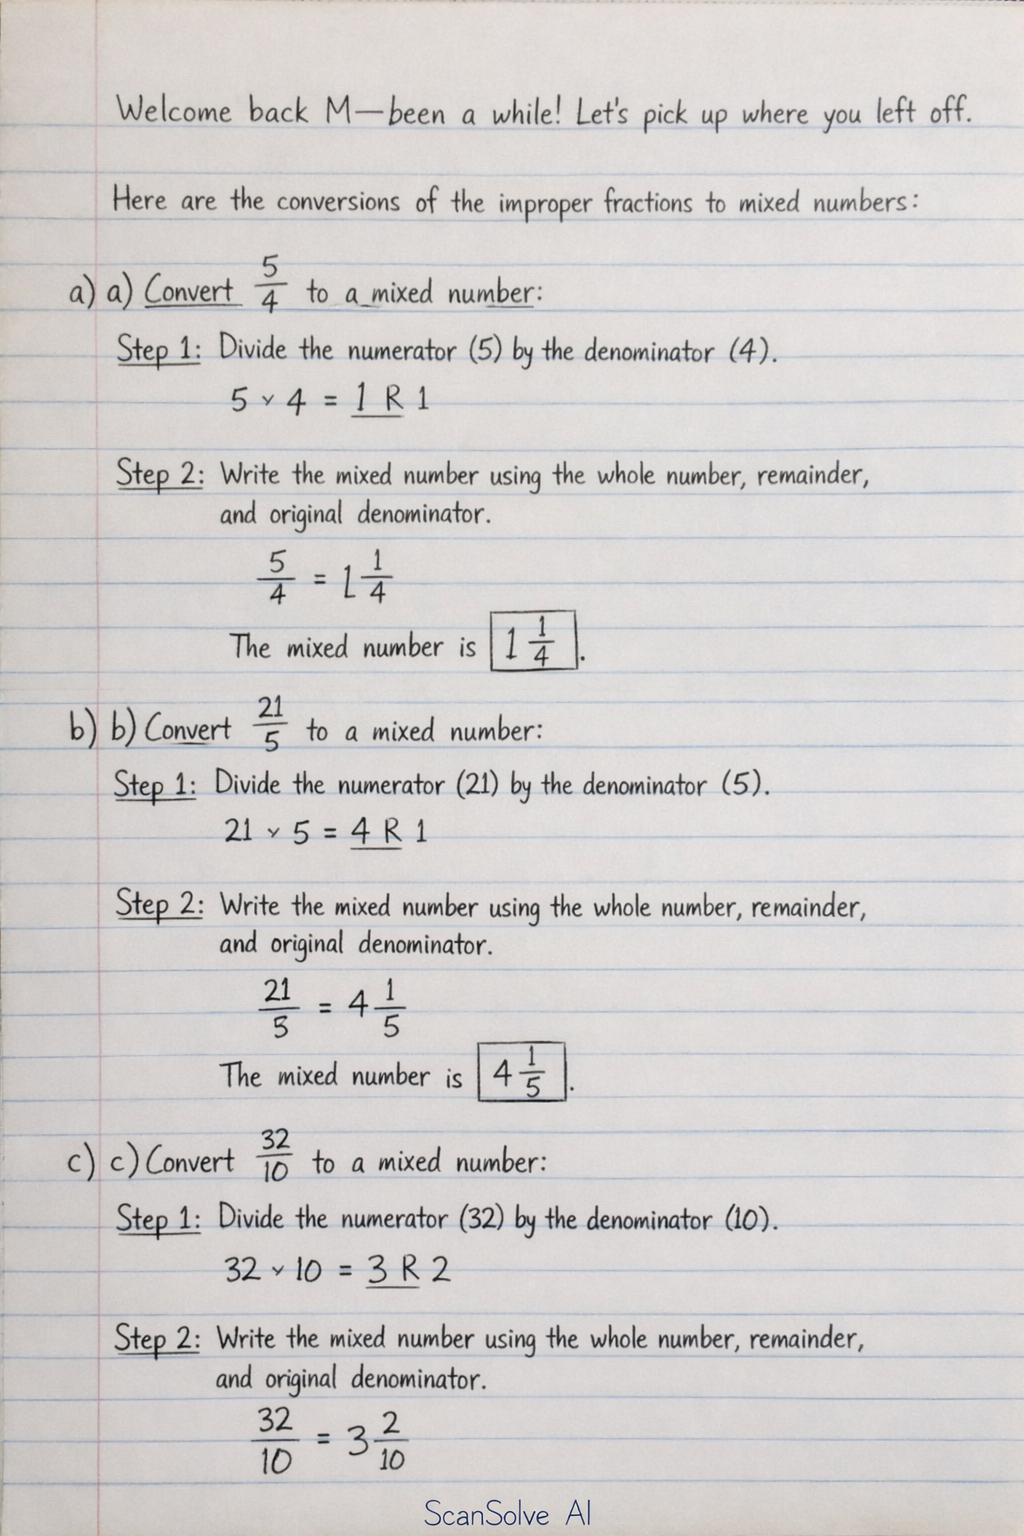 Welcome back M—been a while! Let's pick up where you left off.
Here are the conversions of the improper fractions to mixed numbers:
a) a) Convert 5/4 to a mixed number:
Step 1: Divide the numerator (5) by the denominator (4).
5 ÷ 4 = 1 R 1
Step 2: Write the mixed number using the whole number, remainder,
and original denominator.
5/4 = 1 1/4
The mixed number is 1 1/4.
b) b) Convert 21/5 to a mixed number:
Step 1: Divide the numerator (21) by the denominator (5).
21 ÷ 5 = 4 R 1
Step 2: Write the mixed number using the whole number, remainder,
and original denominator.
21/5 = 4 1/5
The mixed number is 4 1/5.
c) c) Convert 32/10 to a mixed number:
Step 1: Divide the numerator (32) by the denominator (10).
32 ÷ 10 = 3 R 2
Step 2: Write the mixed number using the whole number, remainder,
and original denominator.
32/10 = 3 2/10
ScanSolve AI